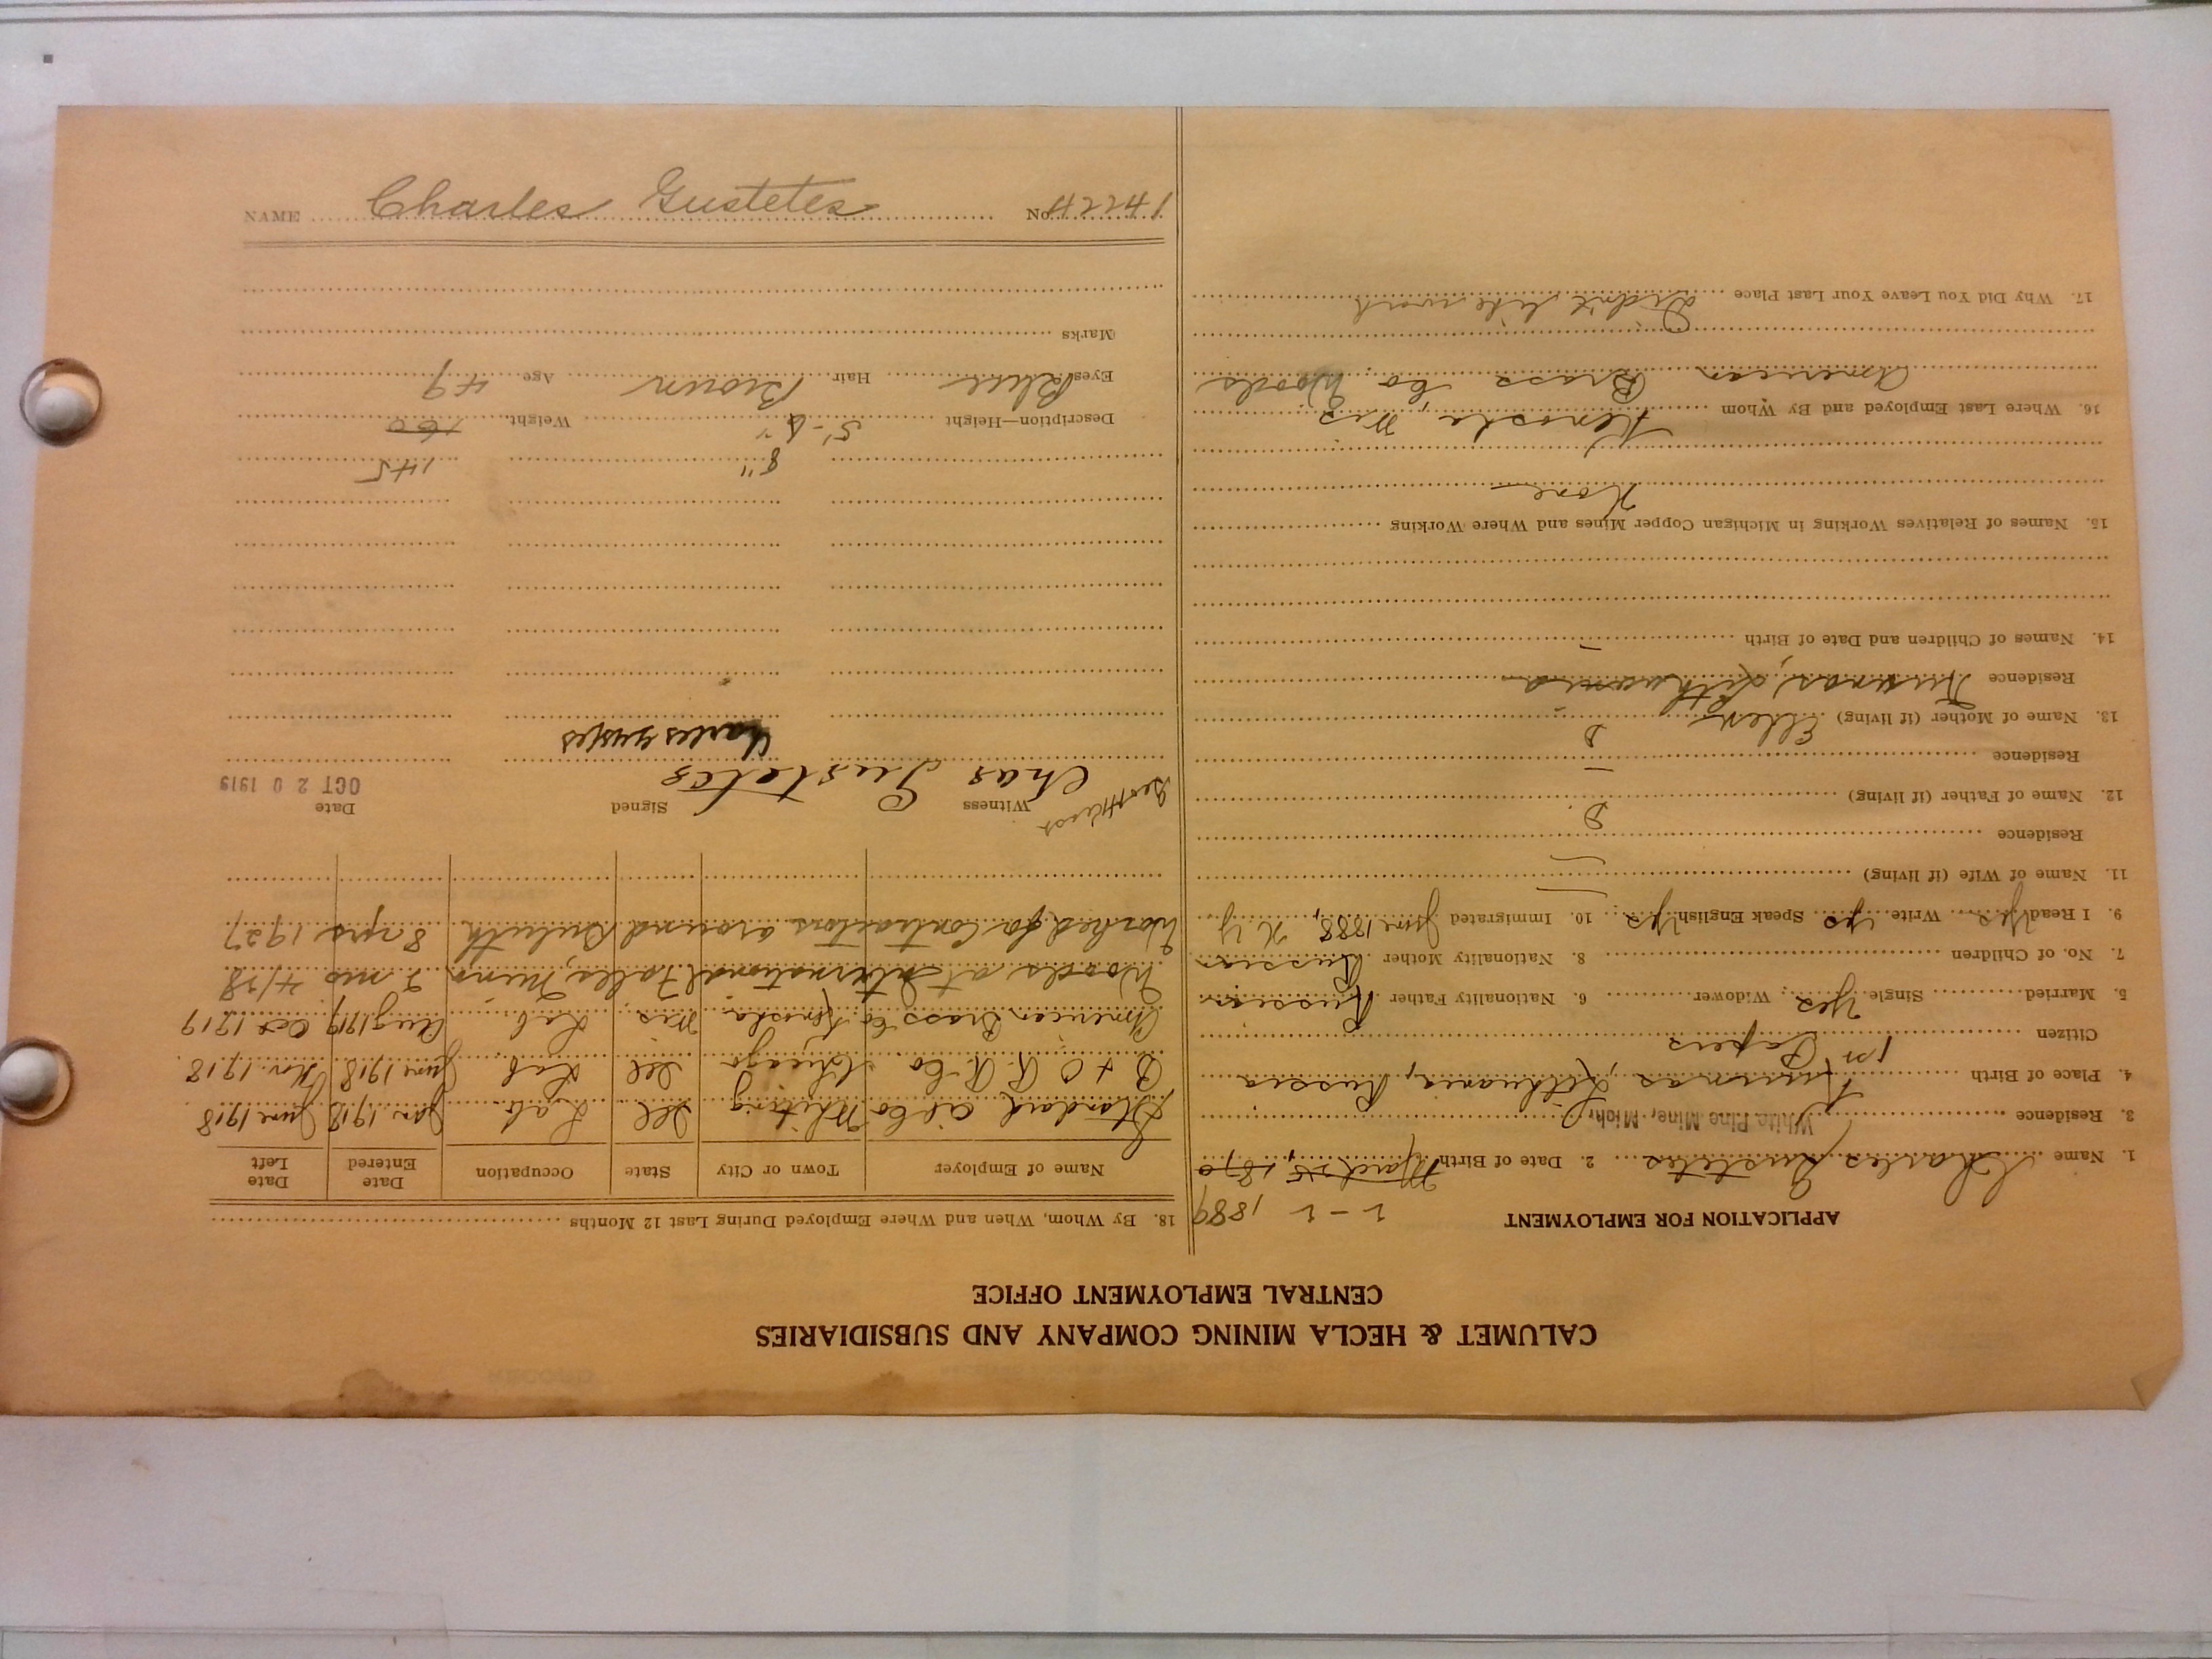 CALUMET & HECLA MINING COMPANY AND SUBSIDIARIES
CENTRAL EMPLOYMENT OFFICE
APPLICATION FOR EMPLOYMENT
2-2 1889
1. Name Charles Gustetes 2. Date of Birth March 25, 1870
3. Residence White Pine Mine, Mich.
4. Place of Birth Kaunas, Lithuania, Russia
Citizen 1st Papers
5. Married Single Yes Widower 6. Nationality Father Russian
7. No. of Children 8. Nationality Mother Russian
9. I Read Yes Write Yes Speak English Yes 10. Immigrated June 1888, N.Y
11. Name of Wife (if living)
Residence
12. Name of Father (if living) D.
Residence
13. Name of Mother (if living) Ellen D
Residence Kaunas, Lithuania
14. Names of Children and Date of Birth
15. Names of Relatives Working in Michigan Copper Mines and Where Working
None
16. Where Last Employed and By Whom Kenosha Wis
American Brass Co Woods
17. Why Did You Leave Your Last Place Didn't like work
18. By Whom, When and Where Employed During Last 12 Months
Name of Employer Town or City State Occupation Date Entered Date Left
Standard Oil Co Whiting Ill Lab. Jan. 1918 June 1918
B & O R R Co Chicago Ill Lab June 1918 Nov. 1918
American Brass Co Kenosha Wis Lab Aug 1919 Oct 1919
Woods at International Falls, Minn 2 mos 4/28
Worked for Contractors around Duluth 8 yrs 1927
Witness Signed Date
Chas Gustetes OCT 20 1919
Charles
8" 145
Description—Height 5'-6" Weight 160
Eyes Blue Hair Brown Age 49
Marks
NAME Charles Gustetes No. 14224